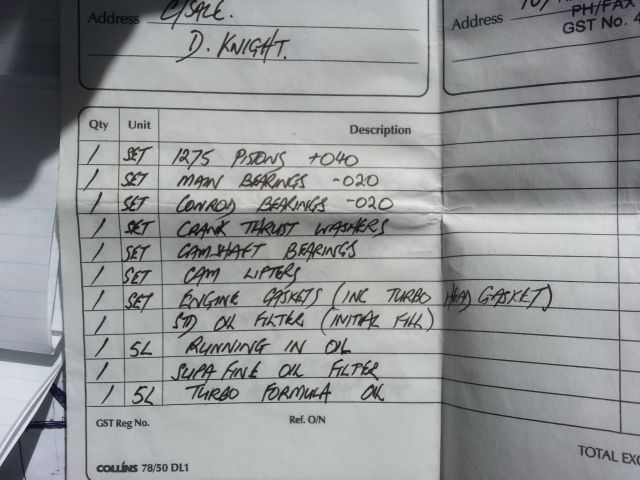 C/SALE.
Address
D. KNIGHT.
Address
PH/FAX
GST No. 4
Qty Unit Description
1 SET 1275 PISTONS +040
1 SET MAIN BEARINGS -020
1 SET CONROD BEARINGS -020
1 SET CRANK THRUST WASHERS
1 SET CAMSHAFT BEARINGS
1 SET CAM LIFTERS
1 SET ENGINE GASKETS (INC TURBO HEAD GASKET)
1 STD OIL FILTER (INITIAL FILL)
1 5L RUNNING IN OIL
1 SUPA FINE OIL FILTER
1 5L TURBO FORMULA OIL
GST Reg No. Ref. O/N
COLLINS 78/50 DL1
TOTAL EXC